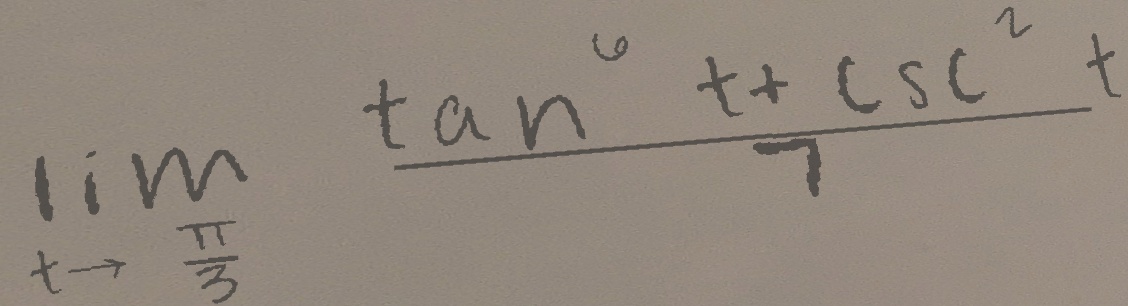 lim t→π/3 (tan⁶ t + csc² t)/7